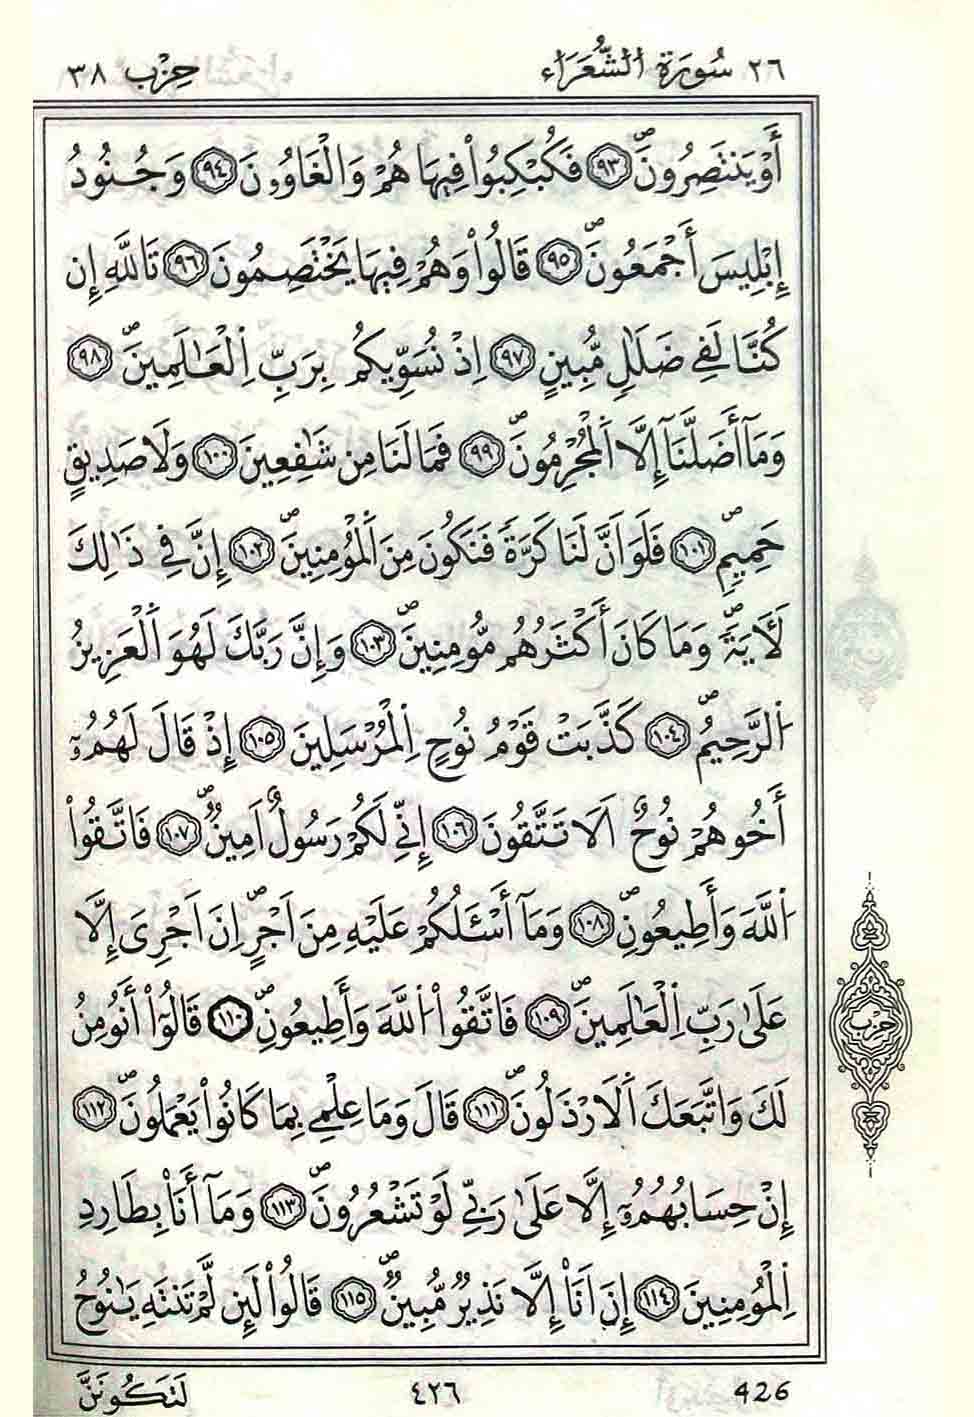 ٢٦ سُورَةُ الشُّعَرَاء حِزْب ٣٨
أَوْ يَنتَصِرُونَۖ ٩٣ فَكُبْكِبُواْ فِيهَا هُمْ وَالْغَاوُۥنَ ٩٤ وَجُنُودُ
إِبْلِيسَ أَجْمَعُونَۖ ٩٥ قَالُواْ وَهُمْ فِيهَا يَخْتَصِمُونَ ٩٦ تَاللَّهِ إِن
كُنَّا لَفِے ضَلَٰلٖ مُّبِينٍ ٩٧ اِذْ نُسَوِّيكُم بِرَبِّ اِ۬لْعَٰلَمِينَۖ ٩٨
وَمَآ أَضَلَّنَآ إِلَّا اَ۬لْمُجْرِمُونَۖ ٩٩ فَمَا لَنَا مِن شَٰفِعِينَ ١٠٠ وَلَا صَدِيقٍ
حَمِيمٖۖ ١٠١ فَلَوَ اَنَّ لَنَا كَرَّةٗ فَنَكُونَ مِنَ اَ۬لْمُؤْمِنِينَۖ ١٠٢ إِنَّ فِے ذَٰلِكَ
لَأٓيَةٗۖ وَمَا كَانَ أَكْثَرُهُم مُّؤْمِنِينَۖ ١٠٣ وَإِنَّ رَبَّكَ لَهُوَ اَ۬لْعَزِيزُ
اُ۬لرَّحِيمُۖ ١٠٤ كَذَّبَتْ قَوْمُ نُوحٍ اِ۬لْمُرْسَلِينَ ١٠٥ إِذْ قَالَ لَهُمُۥٓ
أَخُوهُمْ نُوحٌ اَلَا تَتَّقُونَ ١٠٦ إِنِّے لَكُمْ رَسُولٌ اَمِينٞۖ ١٠٧ فَاتَّقُواْ
اُ۬للَّهَ وَأَطِيعُونِۖ ١٠٨ وَمَآ أَسْـَٔلُكُمْ عَلَيْهِ مِنَ اَجْرٍۖ اِنَ اَجْرِىَ إِلَّا
عَلَىٰ رَبِّ اِ۬لْعَٰلَمِينَۖ ١٠٩ فَاتَّقُواْ اُ۬للَّهَ وَأَطِيعُونِۖ ١١٠ قَالُوٓاْ أَنُومِنُ
لَكَ وَاتَّبَعَكَ اَ۬لَارْذَلُونَۖ ١١١ قَالَ وَمَا عِلْمِے بِمَا كَانُواْ يَعْمَلُونَۖ ١١٢
إِنْ حِسَابُهُمُۥٓ إِلَّا عَلَىٰ رَبِّے لَوْ تَشْعُرُونَۖ ١١٣ وَمَآ أَنَا۠ بِطَارِدِ
اِ۬لْمُومِنِينَ ١١٤ إِنَ اَنَا۠ إِلَّا نَذِيرٞ مُّبِينٞۖ ١١٥ قَالُواْ لَئِن لَّمْ تَنتَهِ يَٰنُوحُ
حِزْب
لَتَكُونَنَّ ٤٢٦ 426